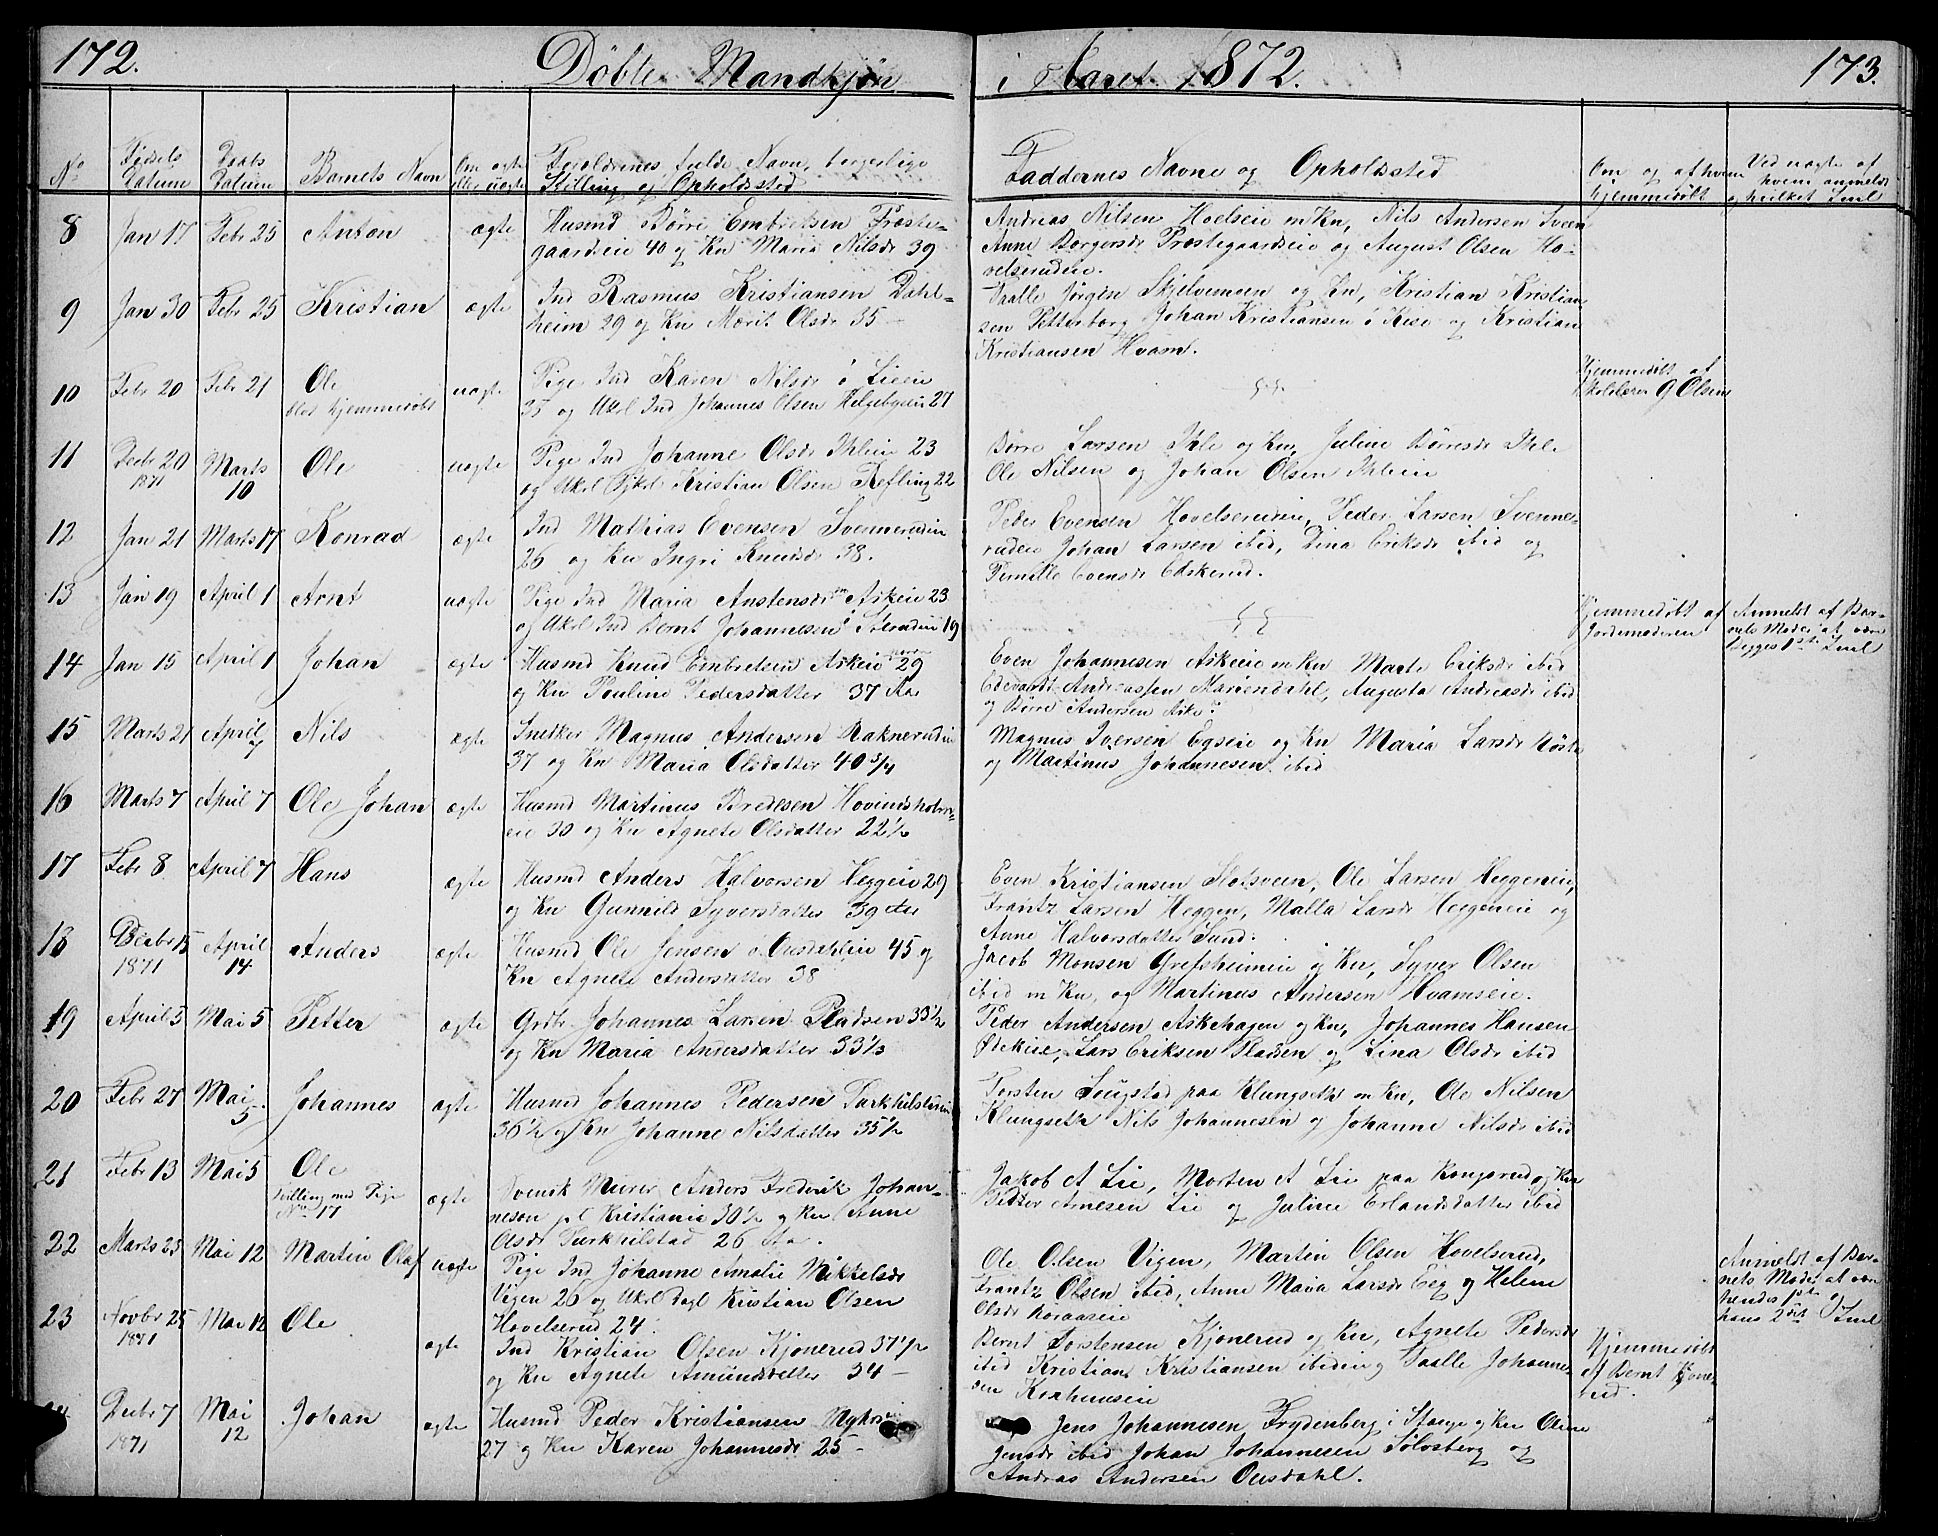 172. Döbte Mandkjön i Aaret 1872. 173.
No
Födsels Datum
Daabs Datum
Barnets Navn
Om ægte eller uægte
Forældrenes fulde Navn, borgerlige Stilling og Opholdssted
Faddernes Navne og Opholdssted
Om og af hvem hjemmedöbt
Ved uægte af hvem anmeldt og hvilket Leiermaal
8 Jan 17 Febr 25 Anton ægte Husmd Börre Embretsen Præste-
gaardseie 40 og Kn Maria Nilsdr 39
Andreas Nilsen Hoelseie m Kn, Nils Andersen Sveen
Anne Borgersdr Præstegaardseie og August Olsen Ho-
velsrudeie.
9 Jan 30 Febr 25 Kristian ægte Ind Rasmus Kristiansen Dahl-
heim 29 og Kn Marit Olsdr 35 —
Paalle Jörgen Skjelvemoen og Kn, Kristian Kristian
sen Petterborg Johan Kristiansen Kise og Kristian
Kristiansen Hvam.
10 Febr 20 Febr 21 Ole uægte Pige Ind Karen Nilsdr Lieeie
blot hjemmedöbt 35 og Ukrl Ind Johannes Olsen Helgebyeie 27
Hjemmedöbt af
Skolelærer G Olsen
11 Decbr 20 1871 Marts 10 Ole uægte Pige Ind Johanne Olsdr Ihleie 23
og Ukrl Kristian Olsen Refling 22
Börre Larsen Ihle og Kn, Juline Börresdr Ihle.
Ole Nilsen og Johan Olsen Ihleeie
12 Jan 21 Marts 17 Konrad ægte Ind Mathias Evensen Svennerudeie
26 og Kn Ingri Knudsdr 38.
Peder Evensen Hovelsrudeie, Peder Larsen Svenne-
rudeie Johan Larsen ibid, Dina Eriksdr ibid og
Pernille Evensdr Edskerud.
13 Jan 19 April 1 Arnt uægte Pige Ind Maria Anstensdr Askeie 23
og Ukrl Ind Bernt Johannesen 19
Hjemmedöbt af
Jordemoderen
Anmeldt af Bar-
nets Moder at være
Begges 1ste Leierm
14 Jan 15 April 1 Johan ægte Husmd Knud Embretsen Askeie 29
og Kn Pauline Pedersdatter 37 Aar
Even Johannesen Askeie m Kn Marte Eriksdr ibid
Edevardt Andreassen Mariendahl, Augusta Andreasdr ibid
og Börre Andersen Aske
15 Marts 21 April 7 Nils ægte Snedker Magnus Andersen Raknerudeie
37 og Kn Maria Olsdatter 40 3/4
Magnus Iversen Egseie og Kn Maria Larsdr
og Martinus Johannesen ibid
16 Marts 7 April 7 Ole Johan ægte Husmd Martinus Bredesen Hovindsholm-
eie 30 og Kn Agnete Olsdatter 22 1/2
17 Febr 8 April 7 Hans ægte Husmd Anders Halvorsen Heggeie 29
og Kn Gunnild Syversdatter 39 Aar
Even Kristiansen Slotsveen, Ole Larsen Heggeneie,
Frantz Larsen Heggen, Malla Larsdr Heggeneie og
Anne Halvorsdatter Sund.
18 Decbr 15 1871 April 14 Anders ægte Husmd Ole Jensen Ousdahleie 45 og
Kn Agnete Andersdatter 38
Jacob Monsen Grefsheimeie og Kn, Syver Olsen
ibid m Kn, og Martinus Andersen Hvamseie.
19 April 5 Mai 5 Petter ægte Grdbr Johannes Larsen Pladsen 33 1/2
og Kn Maria Andersdatter 33 1/2
Peder Andersen Askehagen og Kn, Johannes Hansen
Ödekeie, Lars Eriksen Pladsen og Lina Olsdr ibid
20 Febr 27 Mai 5 Johannes ægte Husmd Johannes Pedersen Turkhilstadeie
36 1/2 og Kn Johanne Nilsdatter 35 1/2
Torsten Sougstad paa Klungseth m Kn, Ole Nilsen
Klungseth Nils Johannesen og Johanne Nilsdr ibid
21 Febr 13 Mai 5 Ole ægte Svensk Murer Anders Frederik Johan-
Tvilling med Pige No 17
neson pt Kristiania 30 1/2 og Kn Anne
Olsdr Turkhilstad 26 Aar.
Jakob A Lie, Morten A Lie paa Kongsrud og Kn
Petter Arnesen Lie og Juline Erlandsdatter ibid
22 Marts 23 Mai 12 Martin Olaf uægte Pige Ind Johanne Amalie Mikkelsdr
Vigen 26 og Ukrl Dagl Kristian Olsen
Hovelserud 24.
Ole Olsen Vigen, Martin Olsen Hovelserud,
Frantz Olsen ibid, Anne Maria Larsdr Eeg og Helene
Olsdr Boraaseie
Anmeldt af Bar-
nets Moder at være
hendes 1ste og
hans 2det Leierm
23 Novbr 25 1871 Mai 12 Ole ægte Ind Kristian Olsen Kjönerud 37 1/2
og Kn Agnete Amundsdatter 34 —
Bernt Torstensen Kjönerud og Kn, Agnete Pedersdr
ibid Kristian Kristiansen ibideie og Paalle Johanne-
sen Korhunseie
Hjemmedöbt
af Bernt Kjöne-
rud.
Decbr 7 1871 Mai 12 Johan ægte Husmd Peder Kristiansen Myhrs
27 og Kn Karen Johannesdr 25 —
Jens Johannesen Frydenberg i Stange og Kn Oline
Jensdr ibid Johan Johannesen Sölvsberg og
Andreas Andersen Ousdahl.